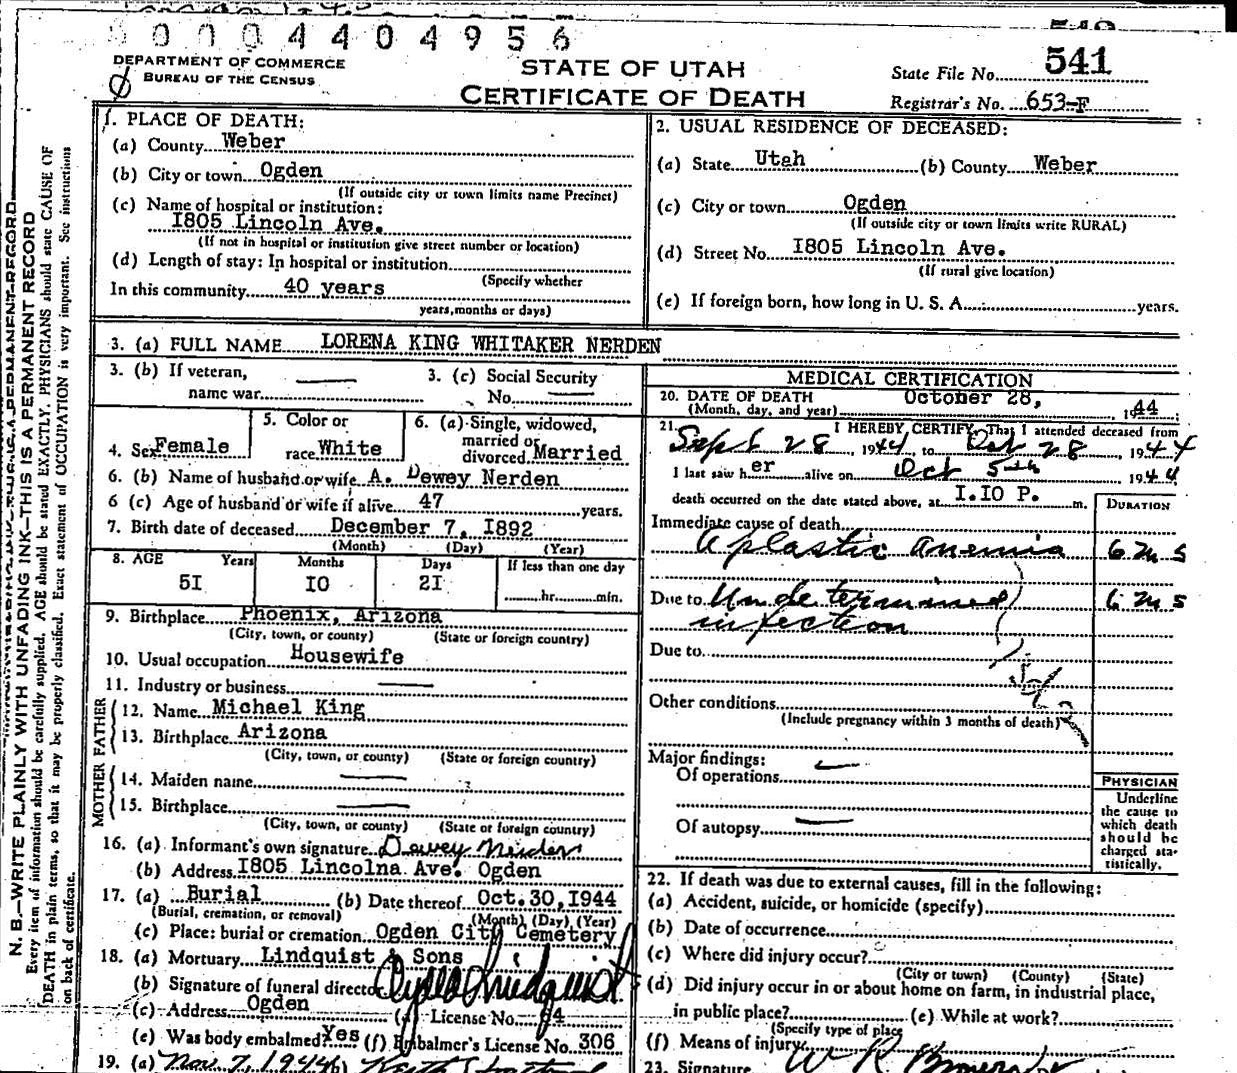 00004404956
DEPARTMENT OF COMMERCE
BUREAU OF THE CENSUS
STATE OF UTAH
CERTIFICATE OF DEATH
State File No. 541
Registrar's No. 653-F
N. B.—WRITE PLAINLY WITH UNFADING INK—THIS IS A PERMANENT RECORD
Every item of information should be carefully supplied. AGE should be stated EXACTLY. PHYSICIANS should state CAUSE OF
DEATH in plain terms, so that it may be properly classified. Exact statement of OCCUPATION is very important. See instructions
on back of certificate.
1. PLACE OF DEATH:
(a) County Weber
(b) City or town Ogden
(If outside city or town limits name Precinct)
(c) Name of hospital or institution:
I805 Lincoln Ave.
(If not in hospital or institution give street number or location)
(d) Length of stay: In hospital or institution
(Specify whether
In this community 40 years
years, months or days)
2. USUAL RESIDENCE OF DECEASED:
(a) State Utah (b) County Weber
(c) City or town Ogden
(If outside city or town limits write RURAL)
(d) Street No. I805 Lincoln Ave.
(If rural give location)
(e) If foreign born, how long in U. S. A. years.
3. (a) FULL NAME LORENA KING WHITAKER NERDEN
3. (b) If veteran,
name war
3. (c) Social Security
No.
4. Sex Female
5. Color or
race White
6. (a) Single, widowed,
married or
divorced Married
6. (b) Name of husband or wife A. Dewey Nerden
6 (c) Age of husband or wife if alive 47 years.
7. Birth date of deceased December 7, I892
(Month) (Day) (Year)
8. AGE Years Months Days If less than one day
5I IO 2I hr. min.
9. Birthplace Phoenix, Arizona
(City, town, or county) (State or foreign country)
10. Usual occupation Housewife
11. Industry or business
FATHER
12. Name Michael King
13. Birthplace Arizona
(City, town, or county) (State or foreign country)
MOTHER
14. Maiden name
15. Birthplace
(City, town, or county) (State or foreign country)
16. (a) Informant's own signature Dewey Nerden
(b) Address I805 Lincolna Ave. Ogden
17. (a) Burial (b) Date thereof Oct.30,1944
(Burial, cremation, or removal) (Month) (Day) (Year)
(c) Place: burial or cremation Ogden City Cemetery
18. (a) Mortuary Lindquist & Sons
(b) Signature of funeral director Lindquist
(c) Address Ogden (d) License No. 64
(e) Was body embalmed? Yes (f) Embalmer's License No. 306
19. (a) Nov. 7, 1944 (b)
MEDICAL CERTIFICATION
20. DATE OF DEATH October 28,
(Month, day, and year) 1944
21. I HEREBY CERTIFY, That I attended deceased from
Sept 28 1944, to Oct 28 1944
I last saw her alive on Oct 5th 1944
death occurred on the date stated above, at I.IO P. m.
DURATION
Immediate cause of death
aplastic anemia 6 ms
Due to Undetermined 6 ms
infection
Due to
Other conditions
(Include pregnancy within 3 months of death)
Major findings:
Of operations
Of autopsy
PHYSICIAN
Underline
the cause to
which death
should be
charged sta-
tistically.
22. If death was due to external causes, fill in the following:
(a) Accident, suicide, or homicide (specify)
(b) Date of occurrence
(c) Where did injury occur?
(City or town) (County) (State)
(d) Did injury occur in or about home on farm, in industrial place,
in public place? (e) While at work?
(Specify type of place
(f) Means of injury
23. Signature W R